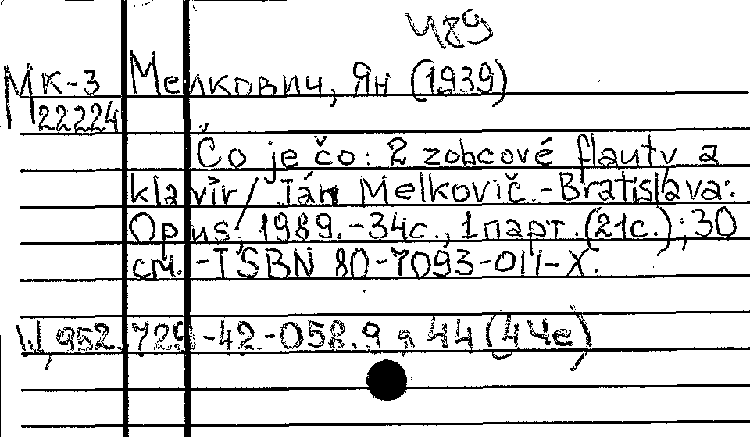 489
МК-3 Мелкович, Ян (1939)
22224
Čo je čo: 2 zobcové flauty a
klavír / Ján Melkovič.-Bratislava:
Opus, 1989.-34с., 1парт.(21с.); 30
см.-ISBN 80-7093-011-X.
W,952.729-42-058.9 я 44 (4Че)